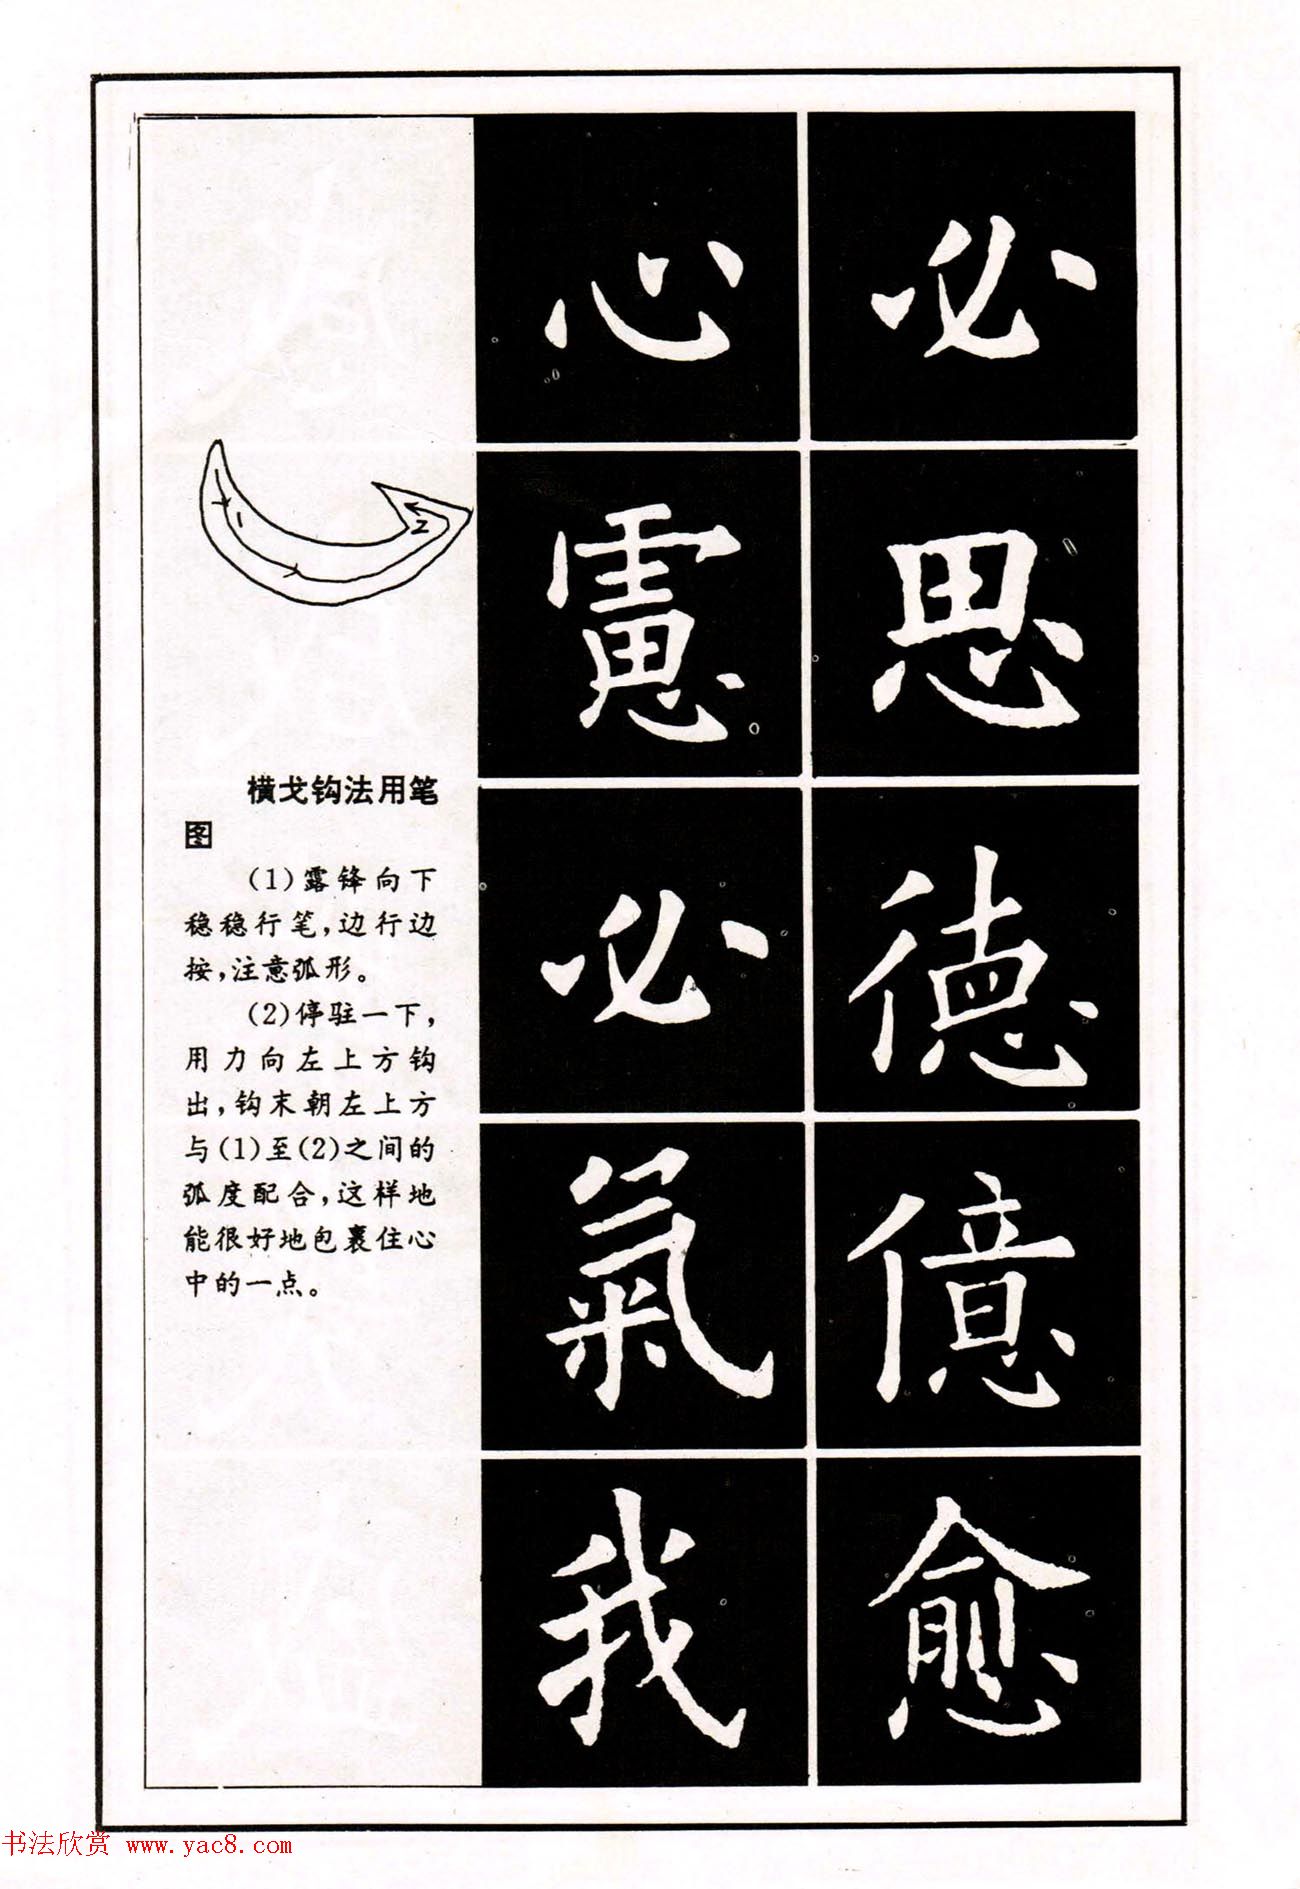 必
思
德
億
愈
心
慮
必
氣
我
1
2
横戈钩法用笔
图
(1)露锋向下
稳稳行笔,边行边
按,注意弧形。
(2)停驻一下,
用力向左上方钩
出,钩末朝左上方
与(1)至(2)之间的
弧度配合,这样地
能很好地包裹住心
中的一点。
书法欣赏 www.yac8.com